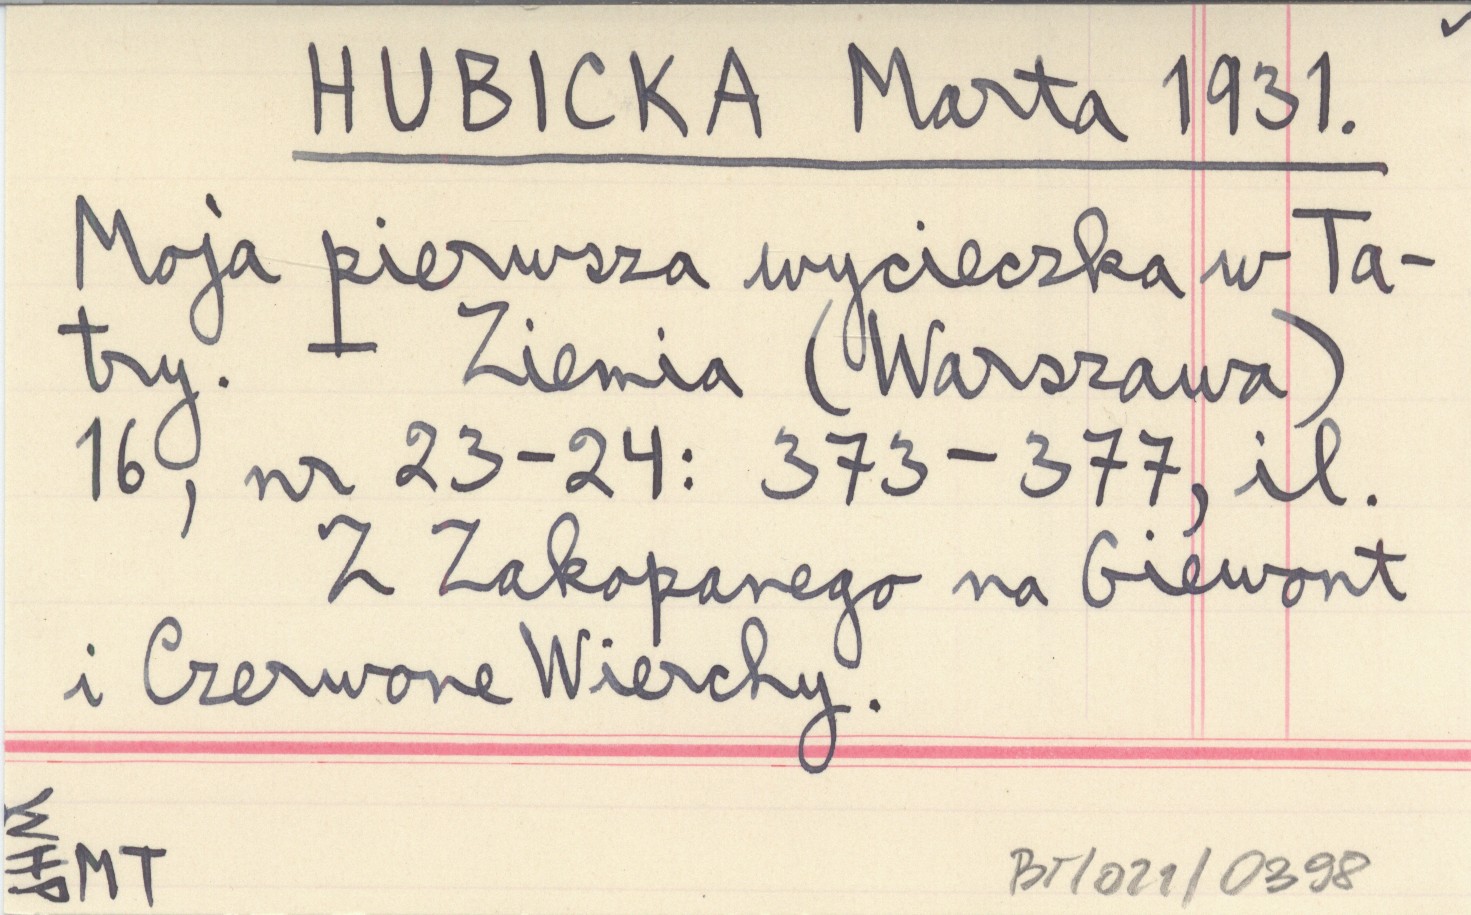 HUBICKA Marta 1931.
Moja pierwsza wycieczka w Ta-
try. — Ziemia (Warszawa)
16, nr 23-24: 373-377, il.
Z Zakopanego na Giewont
i Czerwone Wierchy.
MT
BT/021/0398